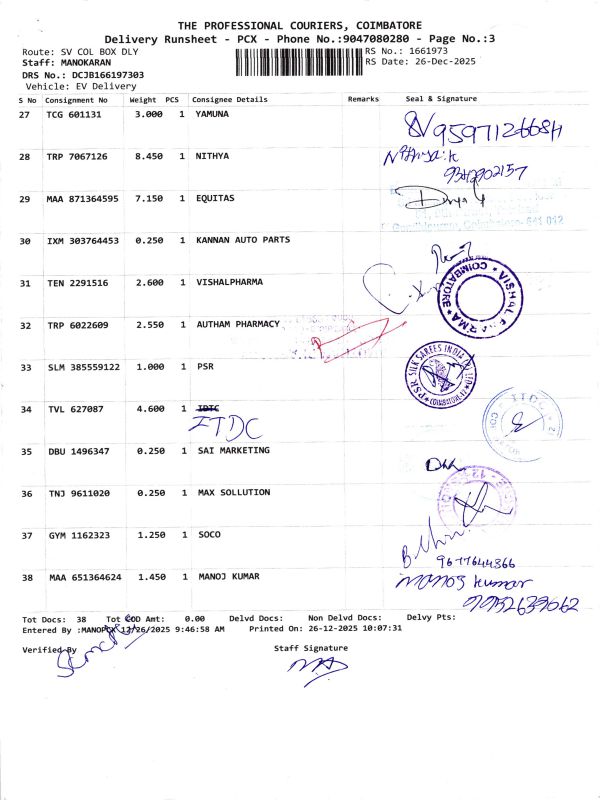 THE PROFESSIONAL COURIERS, COIMBATORE
Delivery Runsheet - PCX - Phone No.:9047080280 - Page No.:3
Route: SV COL BOX DLY
RS No.: 1661973
Staff: MANOKARAN
RS Date: 26-Dec-2025
DRS No.: DCJB166197303
Vehicle: EV Delivery
S No Consignment No Weight PCS Consignee Details Remarks Seal & Signature
27 TCG 601131 3.000 1 YAMUNA
9597126684
28 TRP 7067126 8.450 1 NITHYA
Nithya.k
9342902157
29 MAA 871364595 7.150 1 EQUITAS
Divya
30 IXM 303764453 0.250 1 KANNAN AUTO PARTS
31 TEN 2291516 2.600 1 VISHALPHARMA
VISHAL PHARMA * COIMBATORE *
32 TRP 6022609 2.550 1 AUTHAM PHARMACY
33 SLM 385559122 1.000 1 PSR
PSR SILK SAREES INDIA
34 TVL 627087 4.600 1 IDTC
ITDC
35 DBU 1496347 0.250 1 SAI MARKETING
36 TNJ 9611020 0.250 1 MAX SOLLUTION
37 GYM 1162323 1.250 1 SOCO
9677644366
38 MAA 651364624 1.450 1 MANOJ KUMAR
manoj kumar
9952639662
Tot Docs: 38 Tot COD Amt: 0.00 Delvd Docs: Non Delvd Docs: Delvy Pts:
Entered By :MANOPCX 12/26/2025 9:46:58 AM Printed On: 26-12-2025 10:07:31
Verified By
Staff Signature